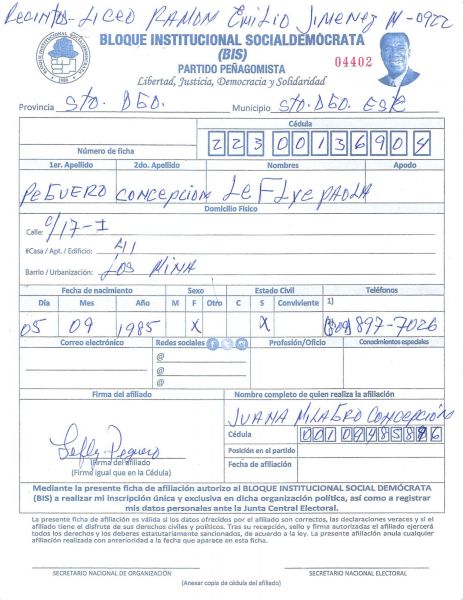 Recinto- Liceo RAMON Emilio JIMENEZ N-0922
BLOQUE INSTITUCIONAL SOCIALDEMÓCRATA
(BIS)
04402
PARTIDO PEÑAGOMISTA
Libertad, Justicia, Democracia y Solidaridad
Provincia Sto. Dgo. Municipio Sto. Dgo. ESTE
Cédula
Número de ficha 22300136904
1er. Apellido 2do. Apellido Nombres Apodo
PEGUERO CONCEPCION LEFLye PAOLA
Domicilio Físico
Calle: C/17-I
#Casa / Apt. / Edificio: 41
Barrio / Urbanización: LOS MINA
Fecha de nacimiento Sexo Estado Civil Teléfonos
Día Mes Año M F Otro C S Conviviente 1)
05 09 1985 X X (809) 897-7026
Correo electrónico Redes sociales Profesión/Oficio Conocimientos especiales
@
@
@
Firma del afiliado Nombre completo de quien realiza la afiliación
JUANA MILAGRO CONCEPCIÓN
Cédula
Lefly Peguero
Posición en el partido
(Firma del afiliado
(Firma igual que en la Cédula)
Fecha de afiliación
Mediante la presente ficha de afiliación autorizo al BLOQUE INSTITUCIONAL SOCIAL DEMÓCRATA
(BIS) a realizar mi inscripción única y exclusiva en dicha organización política, así como a registrar
mis datos personales ante la Junta Central Electoral.
La presente ficha de afiliación es válida si los datos ofrecidos por el afiliado son correctos, las declaraciones veraces y si el
afiliado tiene el disfrute de sus derechos civiles y políticos. Tras su recepción, sello y firma autorizadas el afiliado ejercerá
todos los derechos y los deberes estatutariamente sancionados, de acuerdo a la ley. La presente afiliación anula cualquier
afiliación realizada con anterioridad a la fecha que aparece en esta ficha.
SECRETARIO NACIONAL DE ORGANIZACIÓN SECRETARIO NACIONAL ELECTORAL
(Anexar copia de cédula del afiliado)